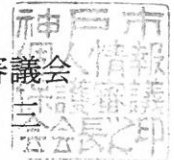 審議会
三
神戸市
個人情報
保護審議
会会長之印